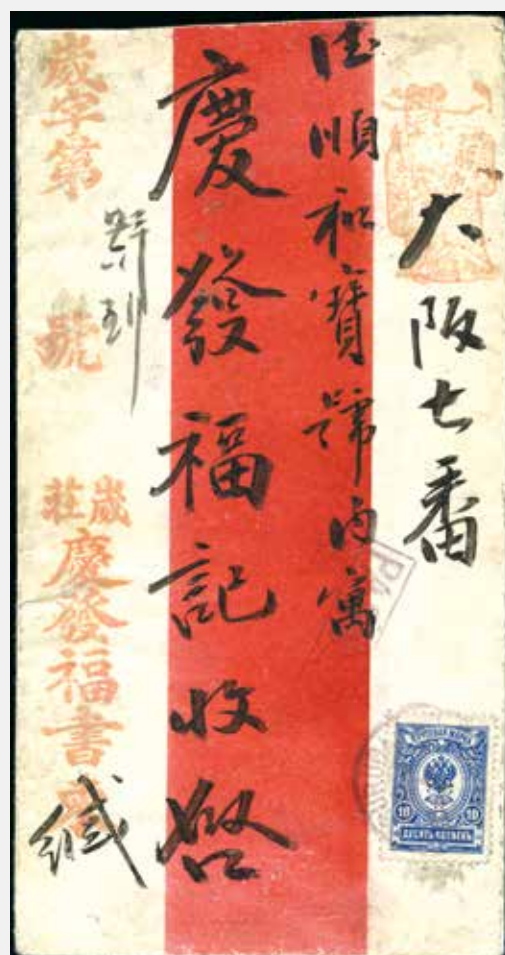 大阪七番
德順和寶號內寓
慶發福記收啓
崴字第 號
崴莊慶發福書
緘
ПОЧТОВАЯ МАРКА
10 10
ДЕСЯТЬ КОПѢЕКЪ